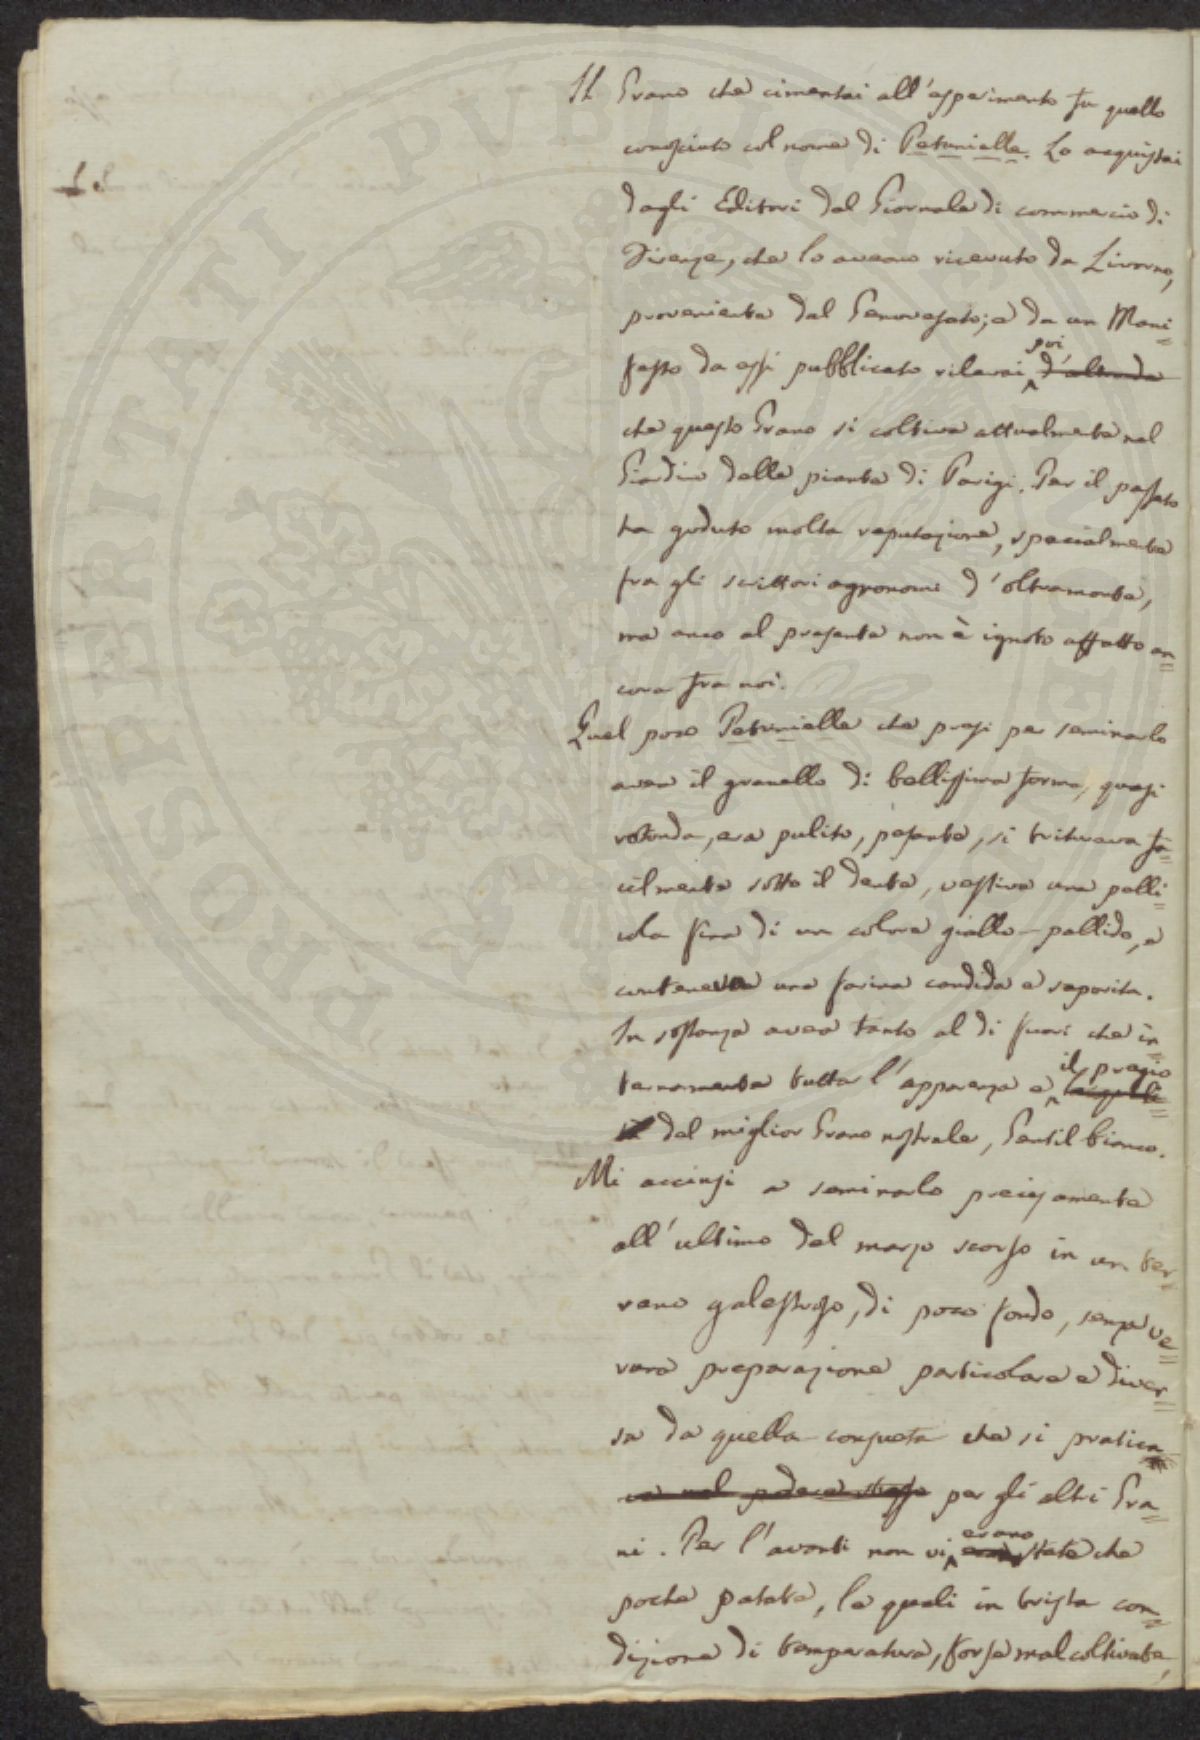 Il Grano che cimentai all'esperimento fu quello
conosciuto col nome di Petunielle. Lo acquistai
dagli Editori del Giornale di commercio di
Firenze, che lo aveano ricevuto da Livorno,
proveniente dal Genovesato; e da un Mani=
festo da essi pubblicato rilevai poi, d'altronde
che questo Grano si coltiva attualmente nel
Giardino delle piante di Parigi. Per il passato
ha goduto molta reputazione, specialmente
fra gli scrittori agronomi d'oltramonte,
ma anco al presente non è ignoto affatto an=
cora fra noi.
Quel poco Petunielle che presi per seminarlo
avea il granello di bellissima forma, quasi
rotonda, era pulito, pesante, si triturava fa=
cilmente sotto il dente, vestiva una pelli=
cola fine di un colore giallo-pallido, e
conteneva una farina candida e saporita.
In sostanza avea tanto al di fuori che in=
ternamente tutta l'apparenza e il pregio
del miglior Grano nostrale, Gentil bianco.
Mi accinsi a seminarlo precisamente
all'ultimo del marzo scorso in un ter=
reno galestroso, di poco fondo, senza ve=
runa preparazione particolare e diver=
sa da quella consueta che si pratica
va nel podere stesso per gli altri Gra=
ni. Per l'avanti non vi erano state che
poche patate, le quali in trista con=
dizione di temperatura, forse mal coltivate,
PROSPERITATI PVBLICAE